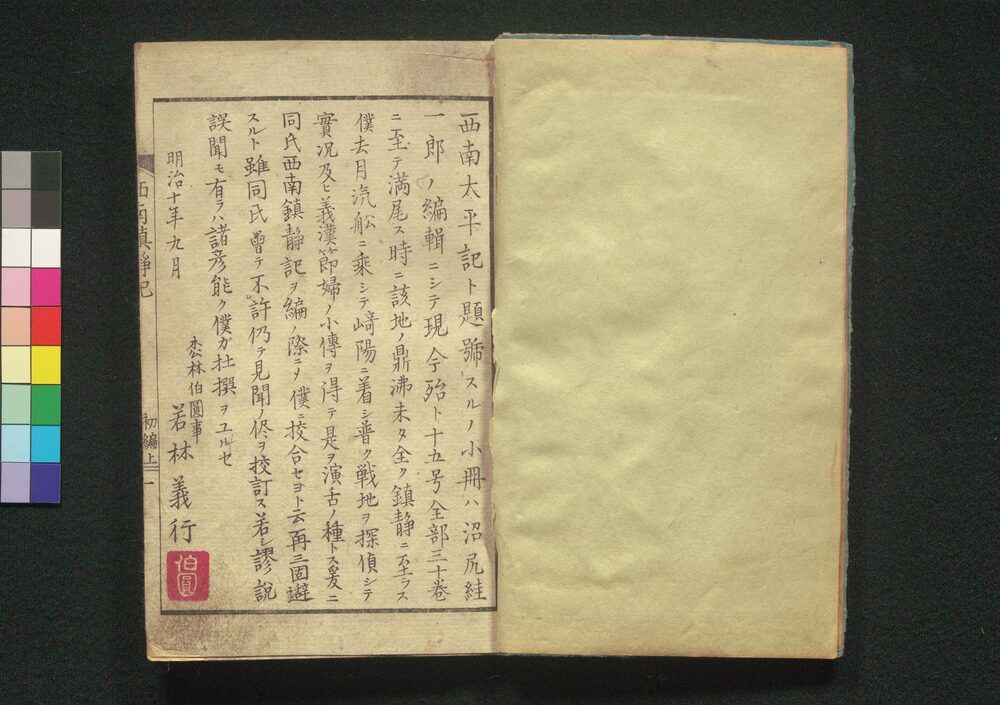 西南太平記ト題號スルノ小冊ハ沼尻絓
一郎ノ編輯ニシテ現今殆ト十五号全部三十巻
ニ至テ満尾ス時ニ該地ノ鼎沸未タ全ク鎮静ニ至ラス
僕去月汽舩ニ乘シテ﨑陽ニ着シ普ク戦地ヲ探偵シテ
實况及ヒ義漢節婦ノ小傳ヲ得テ是ヲ演舌ノ種トス爰ニ
同氏西南鎮静記ヲ編ノ際ニメ僕ニ挍合セヨト云再三固辞
スルト雖同氏曽テ不許仍テ見聞ノ侭ヲ挍訂ス若シ謬説
誤聞モ有ラハ諸彦能ク僕ガ杜撰ヲユルセ
明治十年九月
枩林伯圓事
若林義行
伯圓
西南鎮静記
初編上
一